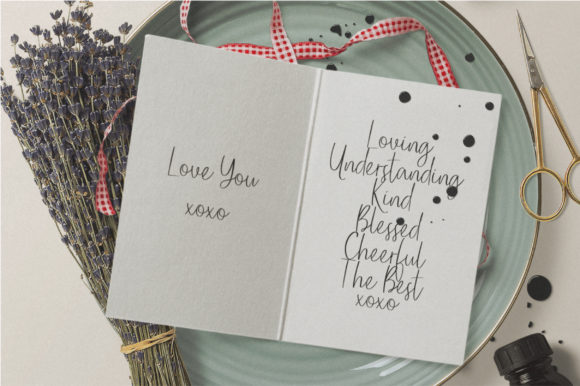 Love You
xoxo
Loving
Understanding
Kind
Blessed
Cheerful
The Best
xoxo